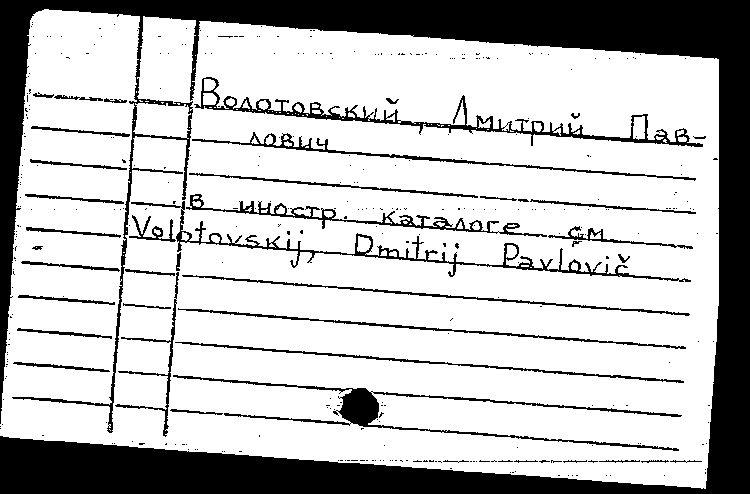 Волотовский, Дмитрий Пав-
лович
в иностр. каталоге см
Volotovskij, Dmitrij Pavlovič